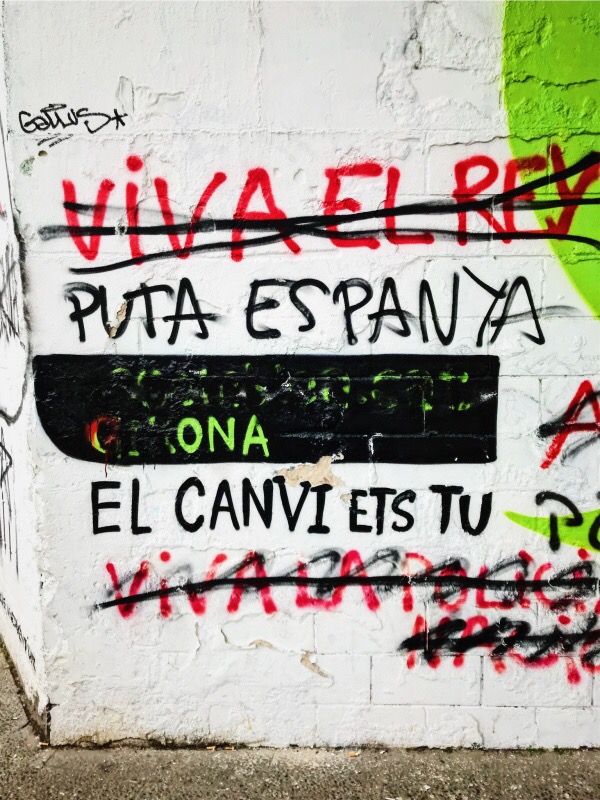 Gatius
VIVA EL REY
PUTA ESPANYA
GIRONA
EL CANVI ETS TU
A
VIVA LA POLICIA